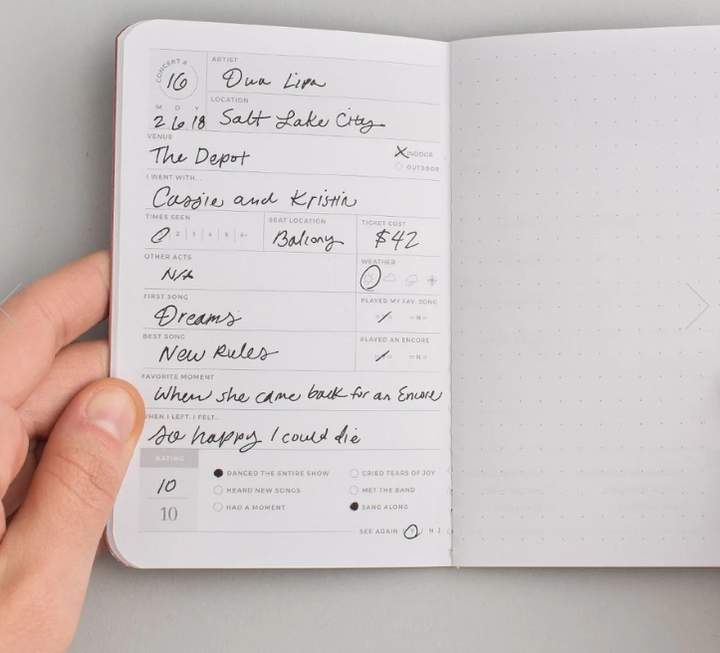 CONCERT # 16
ARTIST Dua Lipa
LOCATION
M D Y
2 6 18 Salt Lake City
VENUE
The Depot X INDOOR
OUTDOOR
I WENT WITH...
Cassie and Kristin
TIMES SEEN SEAT LOCATION TICKET COST
2 3 4 5 6+ Balcony $42
OTHER ACTS WEATHER
N/A
FIRST SONG PLAYED MY FAV. SONG
Dreams N
BEST SONG PLAYED AN ENCORE
New Rules N
FAVORITE MOMENT
When she came back for an Encore
WHEN I LEFT, I FELT...
so happy I could die
RATING
10
10
DANCED THE ENTIRE SHOW CRIED TEARS OF JOY
HEARD NEW SONGS MET THE BAND
HAD A MOMENT SANG ALONG
SEE AGAIN [ Y / N ]